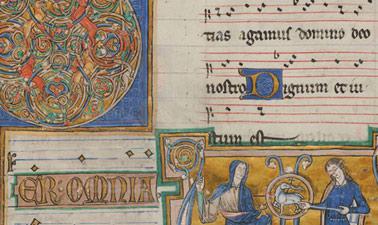 tias agamus domino deo
nostro Dignum et iu
stum est
ER: OMNIA